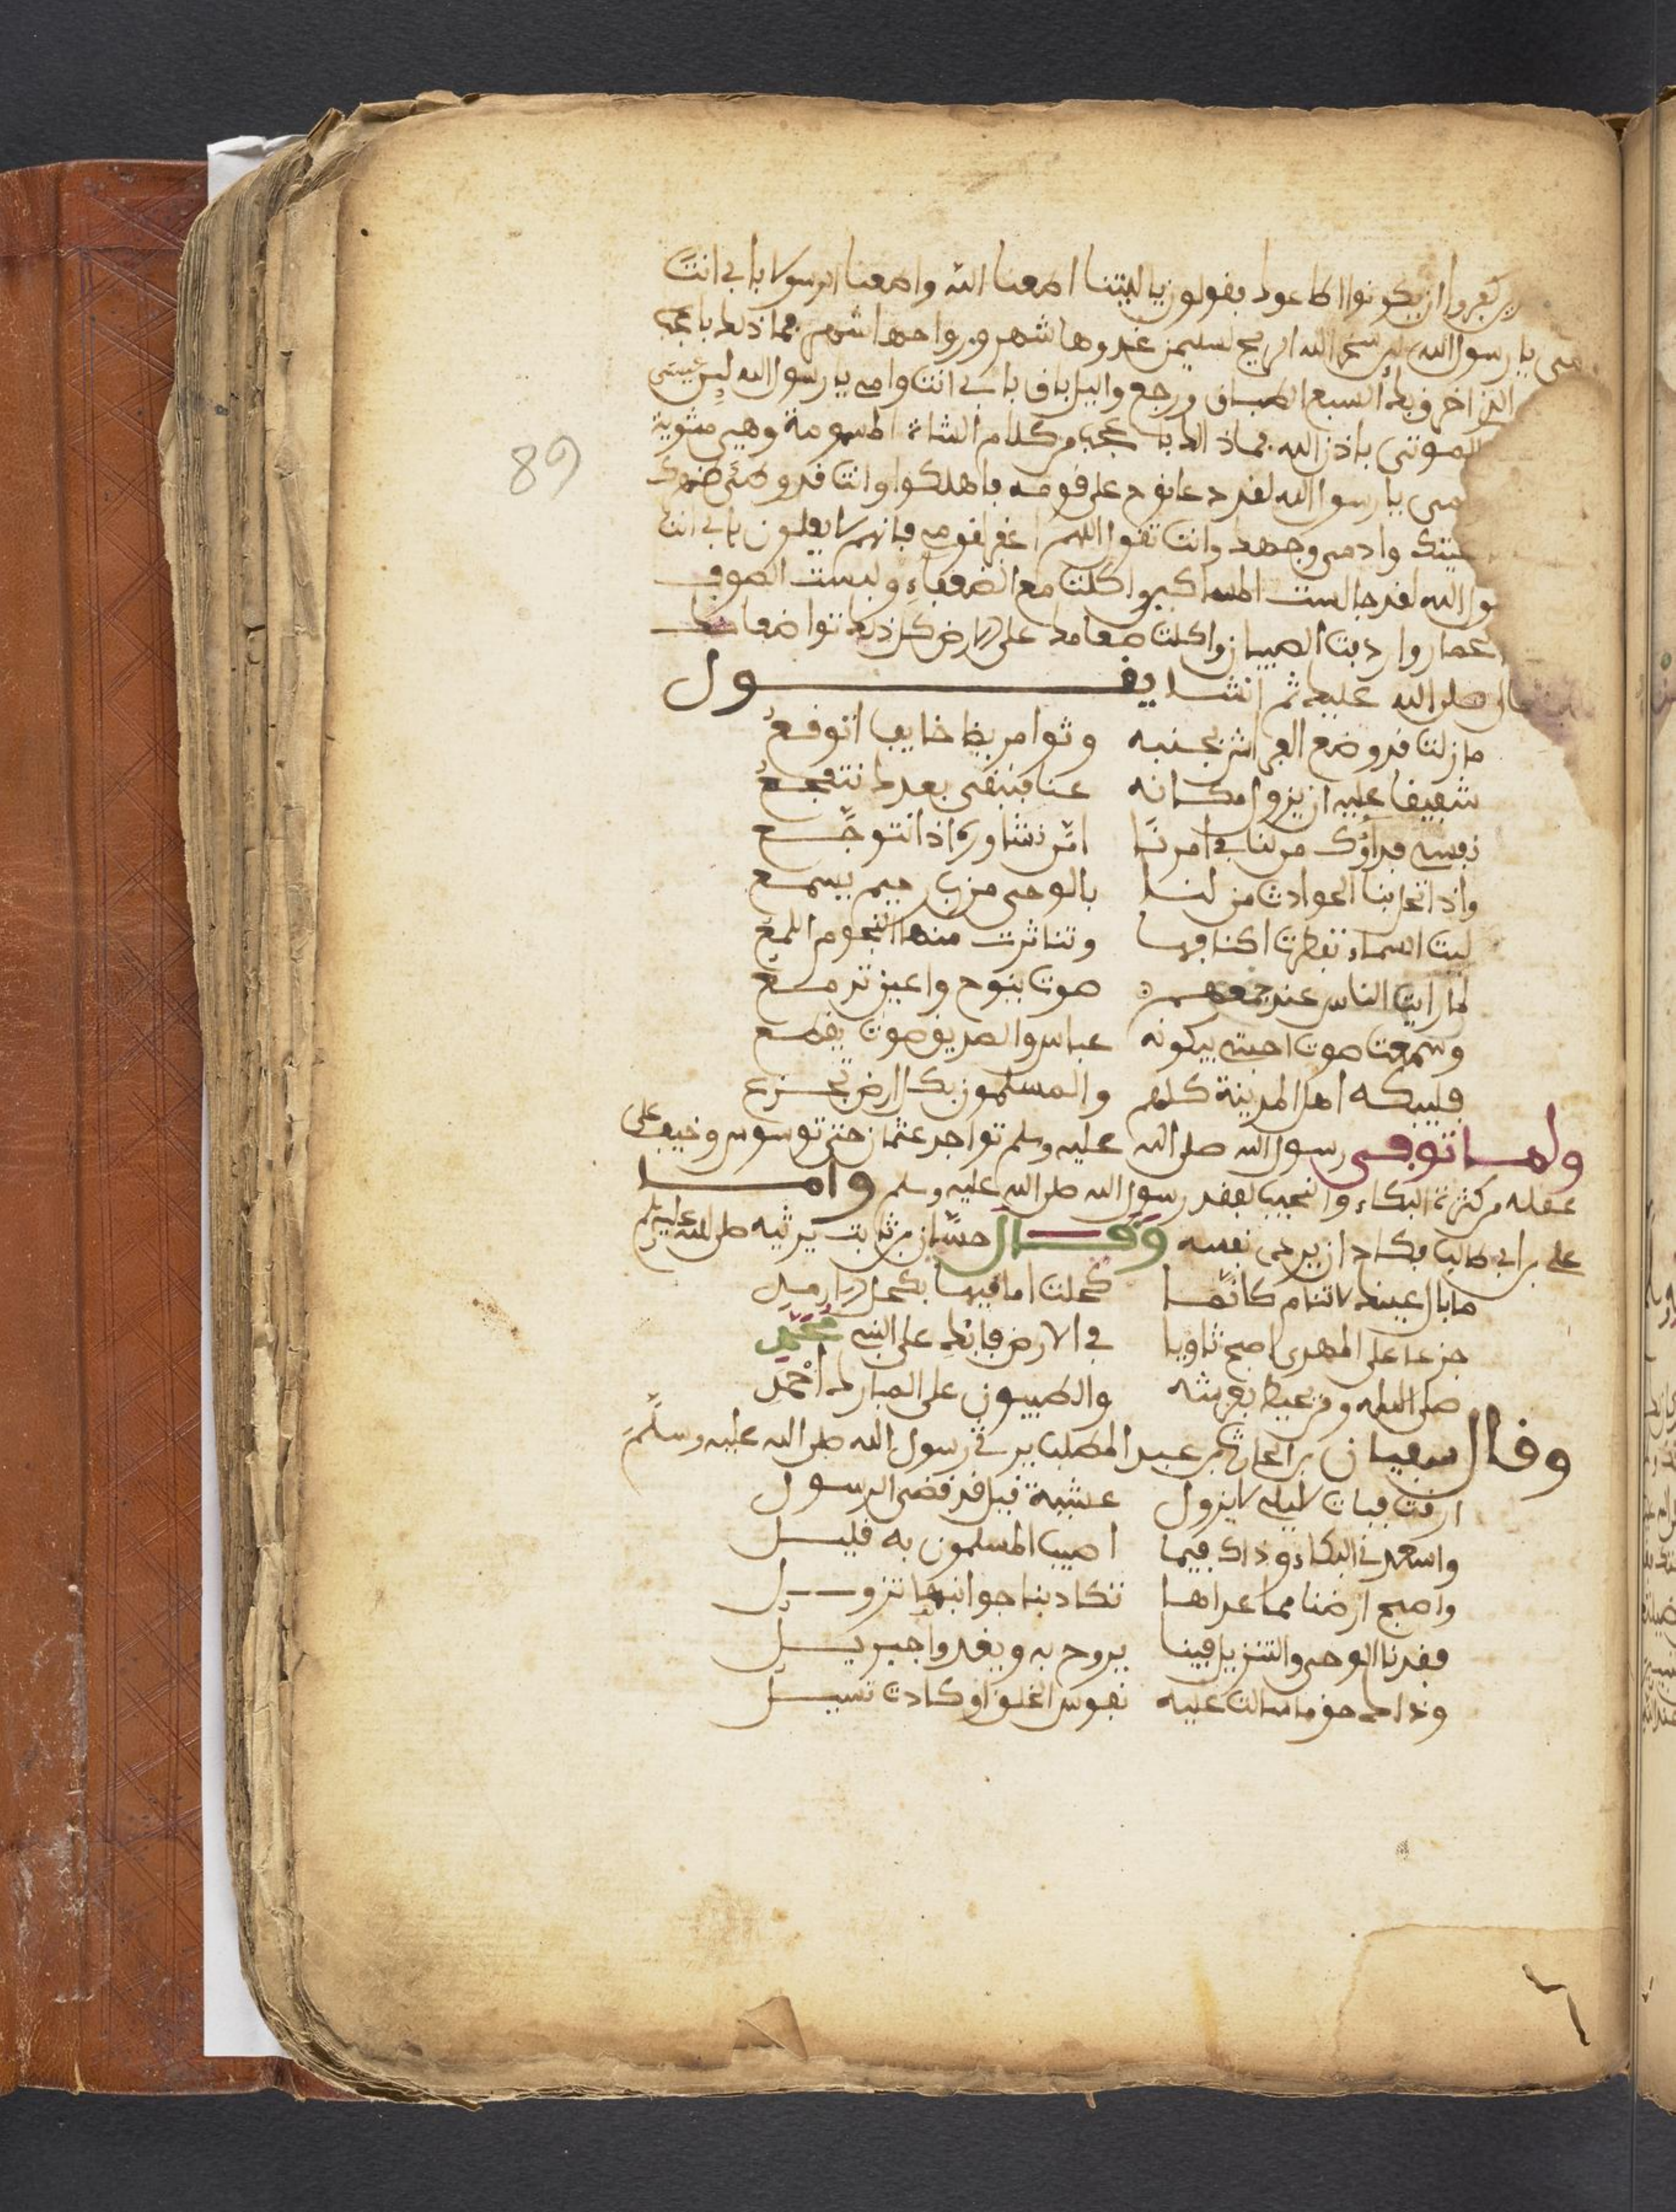 كفروا ان يكونوا اطاعوك يقولون يا ليتنا اطعنا الله واطعنا الرسولا بابي انت
يا رسول الله لين سخر الله الريح لسليمن غدوها شهر ورواحها شهر فما ذلك باعجب
السبع الطباق ورجع واليل باق بابي انت وامي يا رسول الله لين عيسى
الموتى باذن الله فما ذلك باعجب من كلام الشاة المسمومة وهي مشوية
مي يا رسول الله لقد دعا نوح على قومه فاهلكوا وانت قد وطئ ظهرك
وادمي وجهك وانت تقول اللهم اغفر لقومي فانهم لا يعلمون بابي انت
ول الله لقد جالست المساكين واكلت مع الضعفاء ولبست الصوف
واردفت الصبيان واكلت طعامك على الارض كل ذلك تواضعا منك
صلى الله عليك ثم انشا يقول
ما زلت قد وضع الفراش بجنبه وثوا مريضا خايفا اتوقع
شفيقا عليه ان يزول مكانه عنا فنبقى بعدك نتفجع
نفسي فداؤك من لنا في امرنا ام من نشاوره اذا نتوجع
واذا تحل بنا الحوادث من لنا بالوحي من رب رحيم يسمع
ليت السماء تفطرت اكنافها وتناثرت منها النجوم اللمع
لما رايت الناس عند جمعهم صوت ينوح واعين تدمع
وسمعت صوت احبتي يبكونه عباس والصديق صوت يفظع
فليبكه اهل المدينة كلهم والمسلمون بكل ارض تجزع
ولما توفي رسول الله صلى الله عليه وسلم تواجد عثمان حتى توسوس وخيف على
عقله من كثرة البكاء والنحيب لفقد رسول الله صلى الله عليه وسلم واما
علي بن ابي طالب فكاد ان يرمى نفسه وقال حسان بن ثابت يرثيه صلى الله عليه وسلم
ما بال عينك لا تنام كانما كحلت اماقيها بكحل الارمد
جزعا على المهدي اصبح ثاويا في الارض فابك على النبي محمد
صلى الاله ومن يحيط بعرشه والطيبون على المبارك احمد
وقال سفيان بن الحارث بن عبد المطلب يرثي رسول الله صلى الله عليه وسلم
ارقت فبات ليلي لا يزول عشية قيل قد قضى الرسول
واسعدني البكاء وذاك فيما اصيب المسلمون به قليل
واصبح ارضنا مما عراها تكاد بنا جوانبها تزول
فقدنا الوحي والتنزيل فينا يروح به ويغدوا جبريل
وذاك حق ما سالت عليه نفوس الخلق او كادت تسيل
89